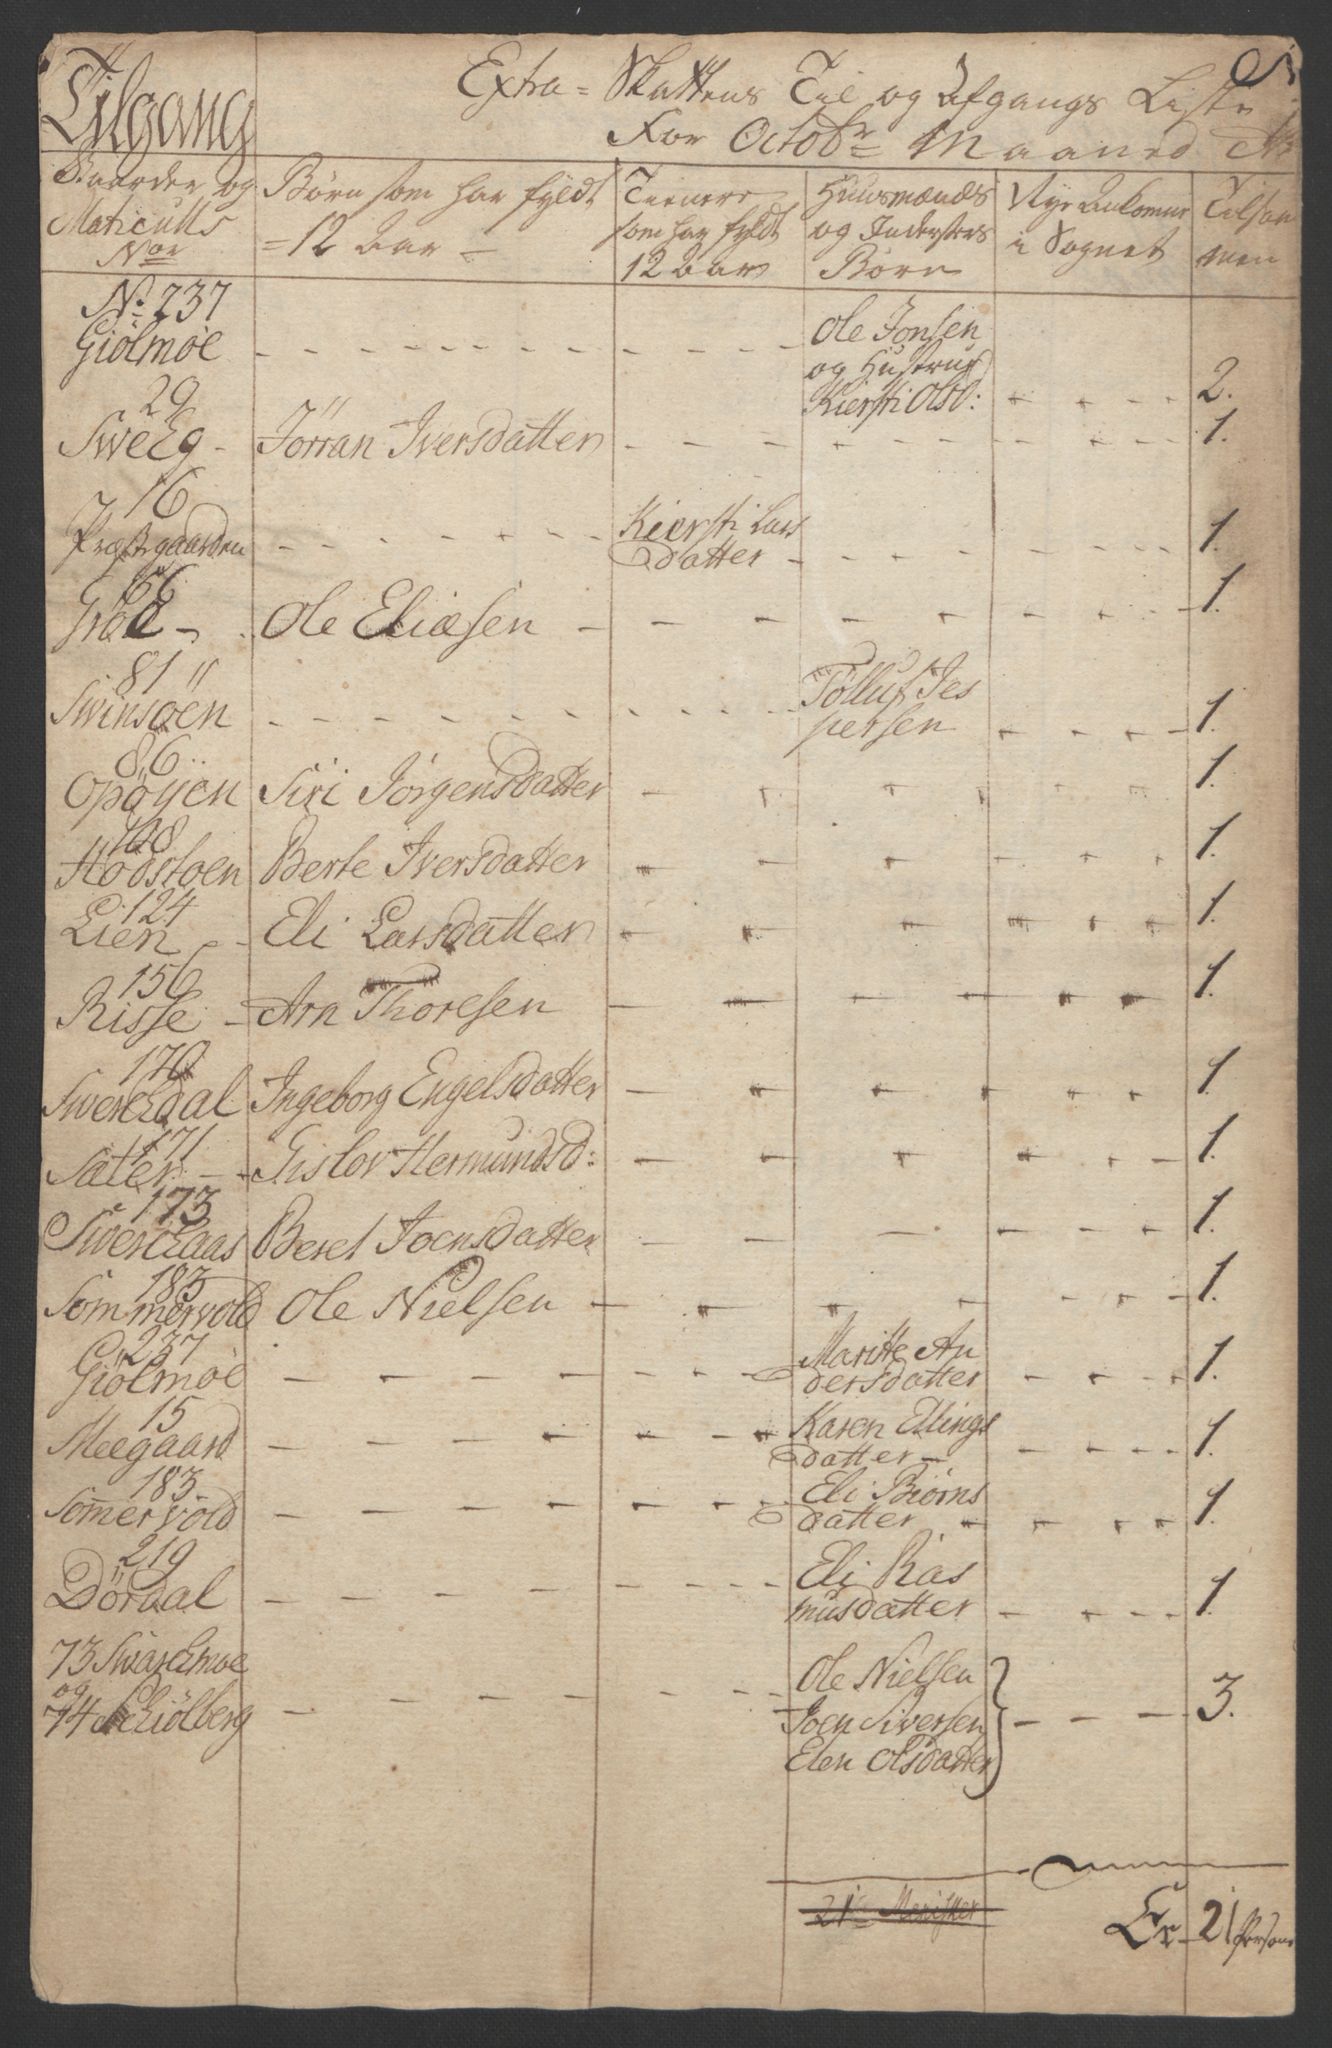 Tilgang
Extra = Skattens Til og Afgangs Liste
For Octobr Maaned
Gaarder og Matriculs Nor
Børn som har fyldt = 12 Aar -
Tienere som har fyldt 12 Aar
Huusmænds og Indersters Børn
Nye Ankomne i Sognet
Tilsam men
No 237
Giölmöe - - - Ole Jonsen
og Hustrue
Kiersti Olsd: - - - 2.
29
Sweeg - Jörran Iversdatter - - - 1.
16
Præstgaarden - - - Kiersti Lars
datter - - - 1.
66
Grøe - Ole Eliæsen - - - 1.
81
Swinsöen - - - Tølluf Jes
persen - - - 1.
86
Opöyen Siri Jörgensdatter - - - 1.
108
Hodstoen Berte Iversdatter - - - 1.
124
Lien - Eli Larsdatter - - - 1.
156
Risse - Arn Thoresen - - - 1.
170
Swerckdal Ingeborg Engelsdatter - - - 1.
171
Sæter - - Gislov Hermundsd: - - - 1.
173
Swerckaas Beret Joensdatter - - - 1.
183
Sommervold Ole Nielsen - - - 1.
237
Giölmöe - - - Maritte An
dersdatter - - - 1.
15
Meegaard - - - Karen Ellings
datter - - - 1.
183
Somervold - - - Eli Biörns
datter - - - 1.
219
Dördal - - - Eli Ras
musdatter - - - 1.
73 Swarckmoe
og
74 Skiölberg - - - Ole Nielsen
Joen Siversen - - - 3.
Elen Olsdatter
21 Menisker
Er - 21 Persone